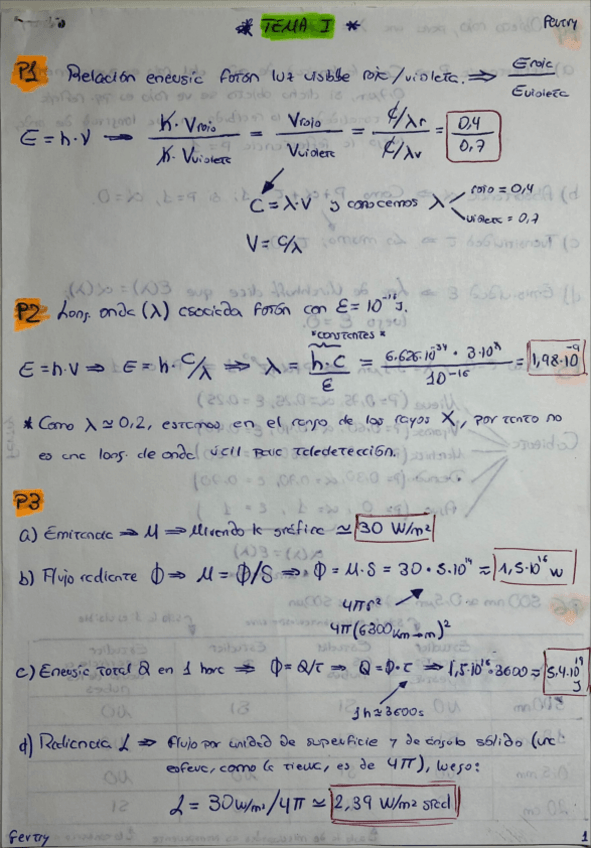 * TEMA I *
Fertry
P1 Relación energía fotón luz visible rojo/violeta. ⇒ Erojo / Evioleta
E = h·V → h·Vrojo / h·Vvioleta = Vrojo / Vvioleta = c/λr / c/λv = 0,4 / 0,7
C = λ·V y conocemos λ rojo = 0,4 violeta = 0,7
V = c/λ
P2 Long. onda (λ) asociada fotón con E = 10⁻¹⁶ J.
*constantes*
E = h·V ⇒ E = h·c/λ ⇒ λ = h·C / E = 6.626·10⁻³⁴ · 3·10⁸ / 10⁻¹⁶ = 1,98·10⁻⁹
* Como λ ≃ 0,2, estamos en el rango de los rayos X, por tanto no
es una long. de onda útil para teledetección.
P3
a) Emitancia ⇒ M ⇒ Mirando la gráfica ≃ 30 W/m²
b) Flujo radiante ϕ ⇒ M = ϕ/S ⇒ ϕ = M·S = 30 · 5·10¹⁴ ≃ 1,5·10¹⁶ W
4πr²
4π(6300 Km→m)²
c) Energía total Q en 1 hora ⇒ ϕ = Q/t ⇒ Q = ϕ·t ⇒ 1,5·10¹⁶·3600 ≃ 5,4·10¹⁹ J
1h ≃ 3600s
d) Radiancia L ⇒ Flujo por unidad de superficie y de ángulo sólido (una
esfera, como la tierra, es de 4π), luego:
L = 30 W/m² / 4π ≃ 2,39 W/m² srad
Fertry
1